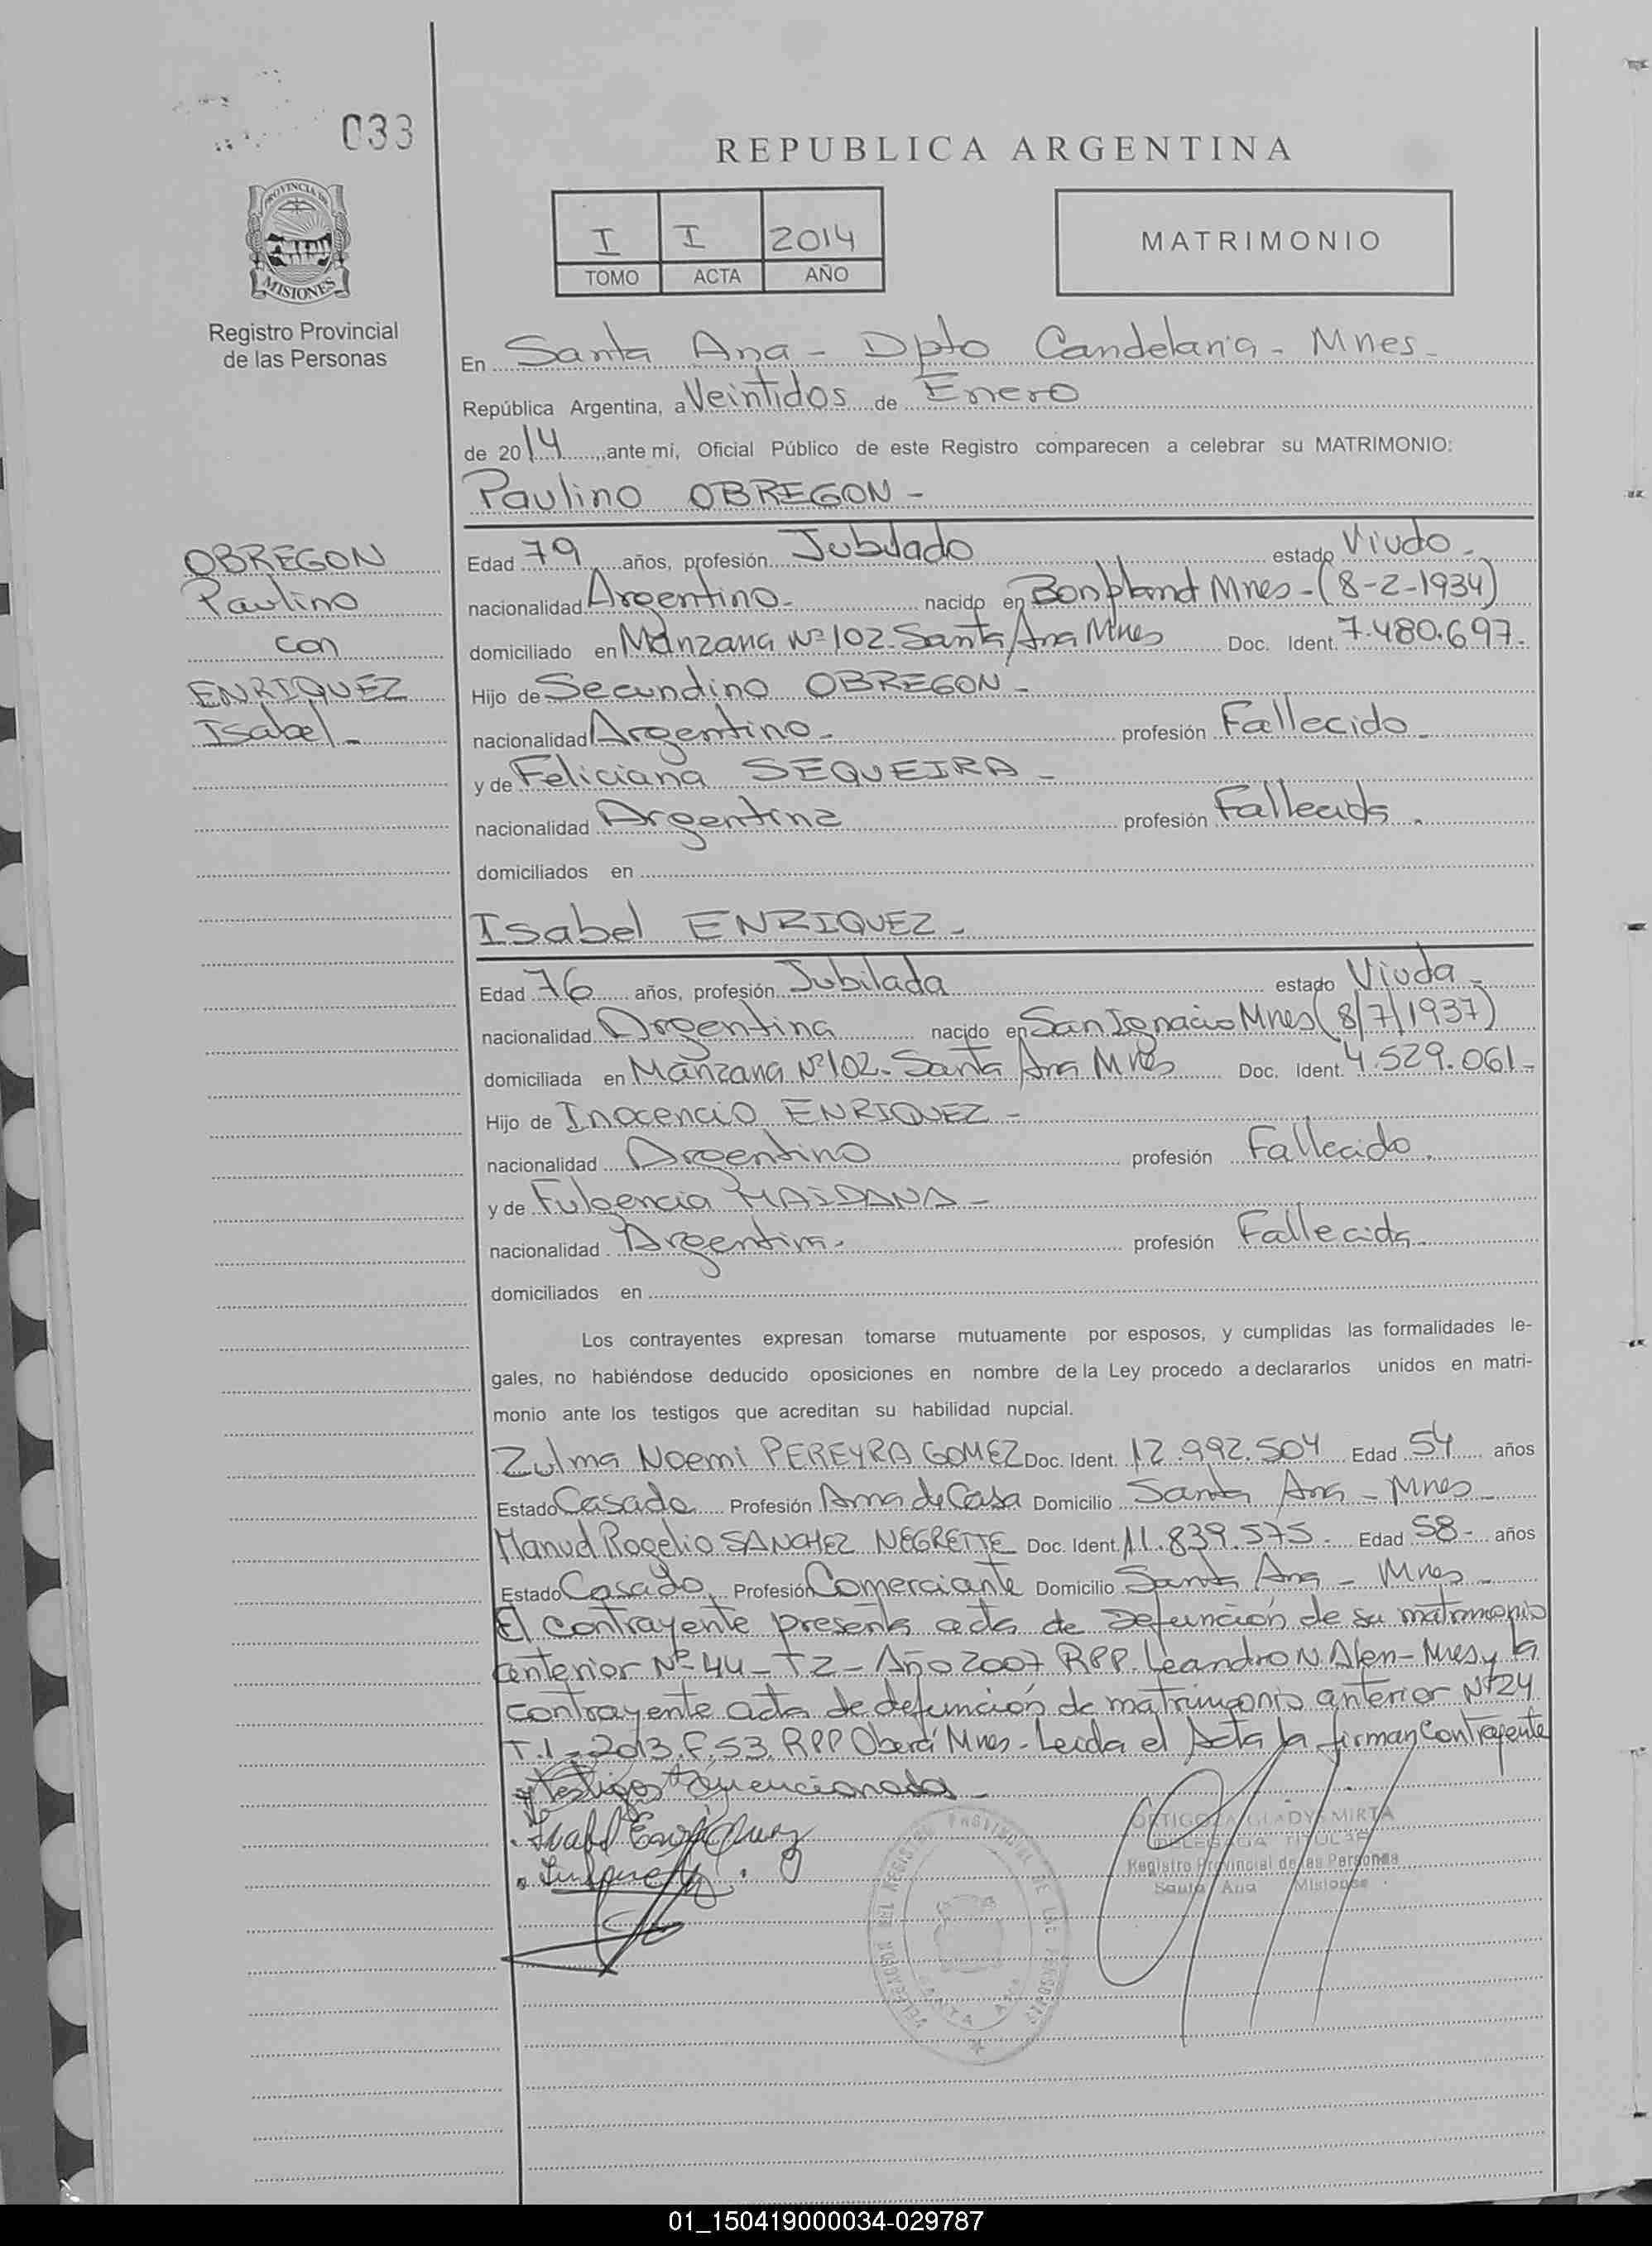 033
REPUBLICA ARGENTINA
PROVINCIA DE
MISIONES
I I 2014
TOMO ACTA AÑO
MATRIMONIO
Registro Provincial
de las Personas
En Santa Ana - Dpto Candelaria - Mnes -
República Argentina, a Veintidos de Enero
de 2014, ante mi, Oficial Público de este Registro comparecen a celebrar su MATRIMONIO:
Paulino OBREGON -
OBREGON
Paulino
con
ENRIQUEZ
Isabel -
Edad 79 años, profesión Jubilado estado Viudo -
nacionalidad Argentino - nacido en Bonpland Mnes - (8-2-1934)
domiciliado en Manzana Nº 102 - Santa Ana Mnes Doc. Ident. 7.480.697 -
Hijo de Secundino OBREGON -
nacionalidad Argentino - profesión Fallecido -
y de Feliciana SEQUEIRA -
nacionalidad Argentina profesión Fallecida .
domiciliados en
Isabel ENRIQUEZ -
Edad 76 años, profesión Jubilada estado Viuda -
nacionalidad Argentina nacido en San Ignacio Mnes (8/7/1937)
domiciliada en Manzana Nº 102 - Santa Ana Mnes Doc. Ident. 4.529.061 -
Hijo de Inocencio ENRIQUEZ -
nacionalidad Argentino profesión Fallecido .
y de Fulgencia MAIDANA -
nacionalidad Argentina - profesión Fallecida -
domiciliados en
Los contrayentes expresan tomarse mutuamente por esposos, y cumplidas las formalidades le-
gales, no habiéndose deducido oposiciones en nombre de la Ley procedo a declararlos unidos en matri-
monio ante los testigos que acreditan su habilidad nupcial.
Zulma Noemi PEREYRA GOMEZ Doc. Ident. 12.992.504 Edad 54 años
Estado Casada Profesión Ama de Casa Domicilio Santa Ana - Mnes -
Manuel Rogelio SANCHEZ NEGRETTE Doc. Ident. 11.839.575 - Edad 58 - años
Estado Casado Profesión Comerciante Domicilio Santa Ana - Mnes -
El contrayente presenta acta de Defunción de su matrimonio
anterior Nº 44 - T2 - Año 2007 RPP. Leandro N. Alen - Mnes y la
contrayente acta de defunción de matrimonio anterior Nº 24
T.1 - 2013. F. 53. RPP Oberá Mnes - Leida el Acta la firman Contrayente
y testigos mencionada -
Isabel Enriquez
ORTIGOZA GLADYS MIRTA
DELEGADA TITULAR
Registro Provincial de las Personas
Santa Ana Misiones
DELEGACION DEL REGISTRO PROVINCIAL DE LAS PERSONAS
SANTA ANA
01_150419000034-029787